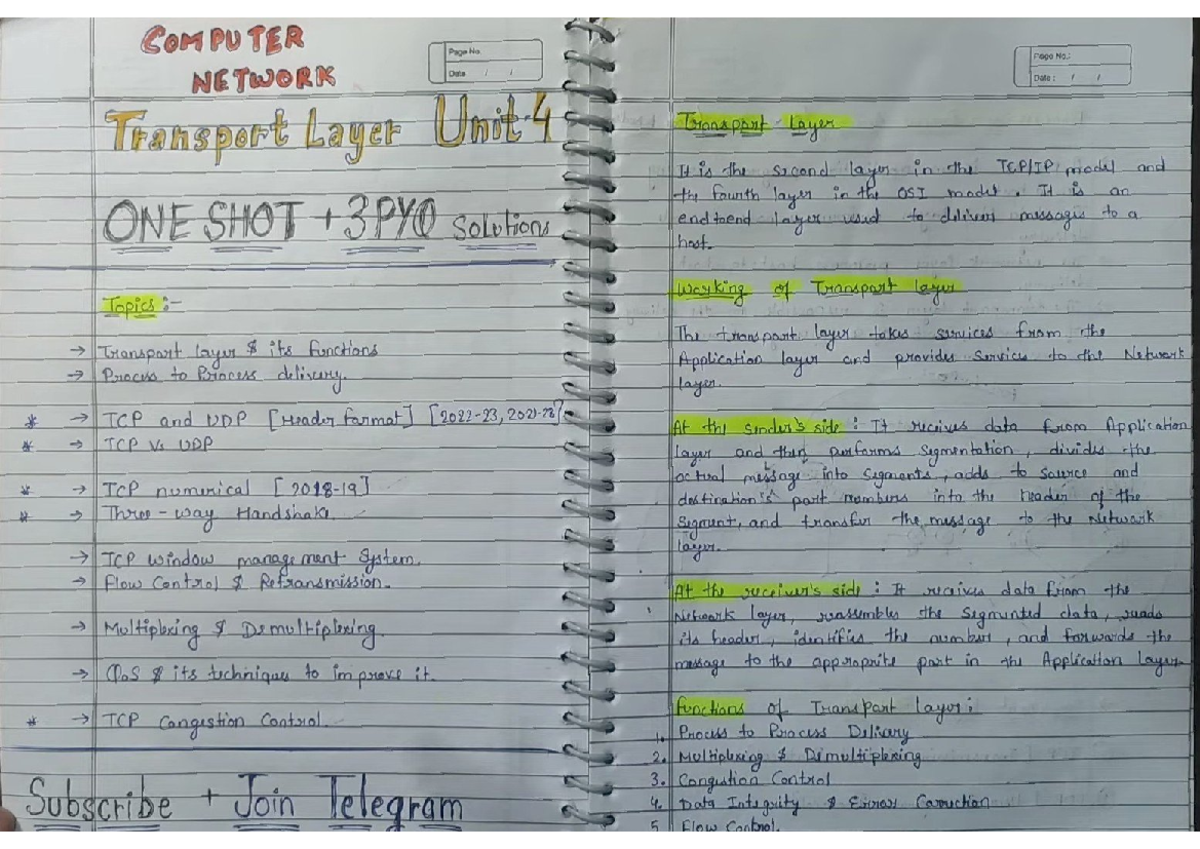 COMPUTER
NETWORK
Page No.
Date / /
Transport Layer Unit-4
ONE SHOT + 3 PYQ Solutions
Topics :-
→ Transport layer & its functions
→ Process to Process delivery.
* → TCP and UDP [Header format] [2022-23, 2021-22]
* → TCP Vs UDP
* → TCP numerical [2018-19]
* → Three-way Handshake
→ TCP window management System.
→ Flow Control & Retransmission.
→ Multiplexing & Demultiplexing.
→ QoS & its technique to improve it.
* → TCP Congestion Control.
Subscribe + Join Telegram
Page No.:
Date : / /
Transport Layer
It is the second layer in the TCP/IP model and
the fourth layer in the OSI model. It is an
end to end layer used to delivers messages to a
host.
Working of Transport layer
The transport layer takes services from the
Application layer and provides Service to the Network
layer.
At the sender's side : It receives data from Application
layer and then performs Segmentation, divides the
actual message into Segments, adds to source and
destination's port numbers into the header of the
Segment, and transfer the message to the Network
layer.
At the receiver's side : It receives data from the
Network layer, reassembles the Segmented data, reads
its header, identifies the number, and forwards the
message to the approprite port in the Application layer.
functions of Transport layer :
1. Process to Process Delivery
2. Multiplexing & Demultiplexing
3. Congestion Control
4. Data Integrity & Error Correction
5. Flow Control.